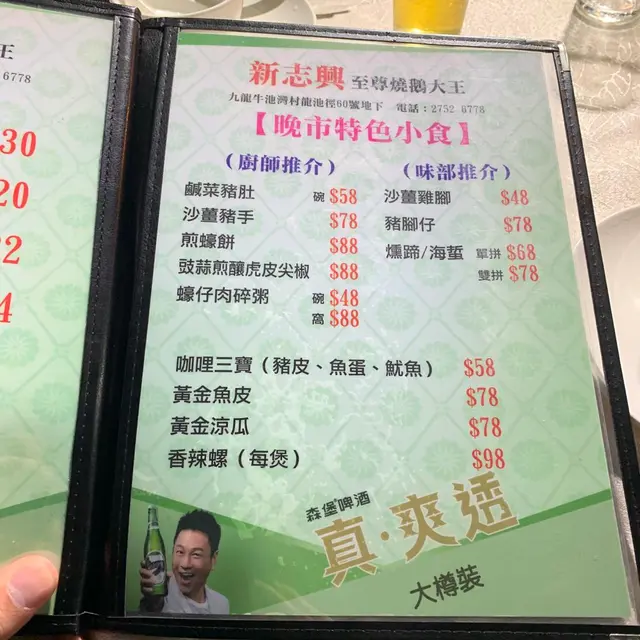 王
6778
30
20
2
4
新志興 至尊燒鵝大王
九龍牛池灣村龍池徑60號地下 電話：2752 6778
【晚市特色小食】
（廚師推介）
鹹菜豬肚 碗 $58
沙薑豬手 $78
煎蠔餅 $88
豉蒜煎釀虎皮尖椒 $88
蠔仔肉碎粥 碗 $48
窩 $88
（味部推介）
沙薑雞腳 $48
豬腳仔 $78
燻蹄/海蜇 單拼 $68
雙拼 $78
咖哩三寶（豬皮、魚蛋、魷魚） $58
黃金魚皮 $78
黃金涼瓜 $78
香辣螺（每煲） $98
森堡啤酒
真·爽透
大樽裝